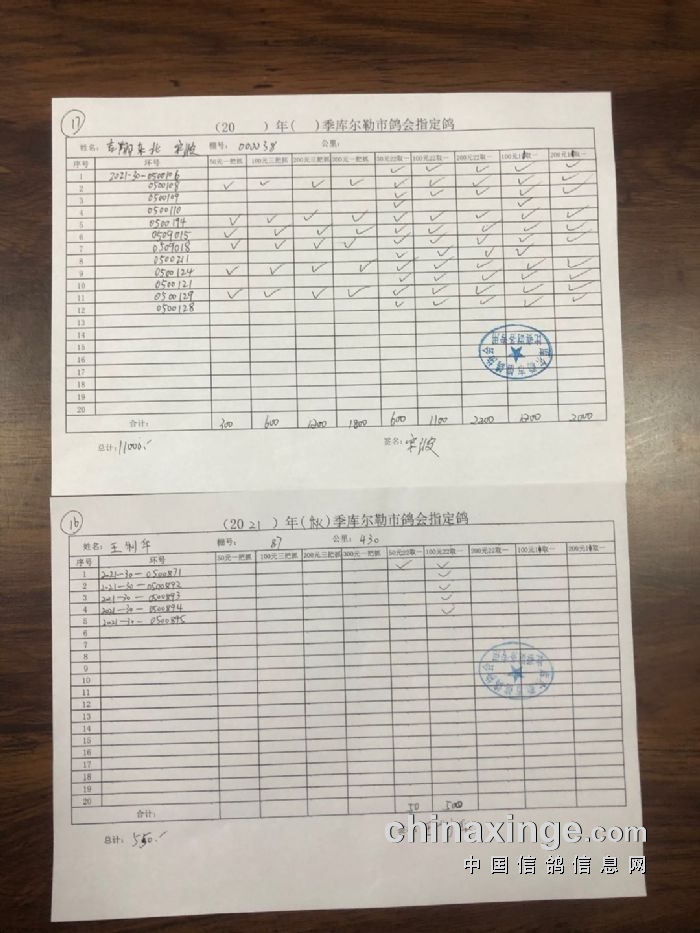 17
(20 ) 年( )季库尔勒市鸽会指定鸽
姓名: 宋波 棚号: 000038 公里:
序号 环号 50元一把抓 100元三把抓 200元三把抓 300元一把抓 50元22取一 100元22取一 200元22取一 100元10取一 200元10取一
1 2021-30-0500106 ✓ ✓ ✓ ✓ ✓
2 0500108 ✓ ✓ ✓ ✓ ✓ ✓ ✓ ✓ ✓
3 0500109 ✓ ✓
4 0500110
5 0500194 ✓ ✓ ✓ ✓ ✓ ✓ ✓ ✓ ✓
6 0509015 ✓ ✓ ✓ ✓ ✓ ✓ ✓ ✓ ✓
7 0509018 ✓ ✓ ✓ ✓ ✓ ✓ ✓ ✓ ✓
8 0500211 ✓ ✓ ✓ ✓
9 0500124 ✓ ✓ ✓ ✓ ✓ ✓ ✓ ✓ ✓
10 0500121 ✓ ✓ ✓ ✓ ✓
11 0500129 ✓ ✓ ✓ ✓ ✓ ✓ ✓ ✓ ✓
12 0500128 ✓ ✓ ✓ ✓ ✓
13
14
15
16
17
18
19
20
合计: 300 600 1200 1800 600 1100 2200 1200 2000
总计: 11000.- 签名: 宋波
16
(20 21 ) 年(秋)季库尔勒市鸽会指定鸽
姓名: 王利华 棚号: 87 公里: 430
序号 环号 50元一把抓 100元三把抓 200元三把抓 300元一把抓 50元22取一 100元22取一 200元22取一 100元10取一 200元10取一
1 2021-30-0500871 ✓ ✓
2 2021-30-0500892 ✓
3 2021-30-0500893 ✓
4 2021-30-0500894 ✓
5 2021-30-0500895
6
7
8
9
10
11
12
13
14
15
16
17
18
19
20
合计: 50 500
总计: 550.-
chinaxinge.com
中国信鸽信息网